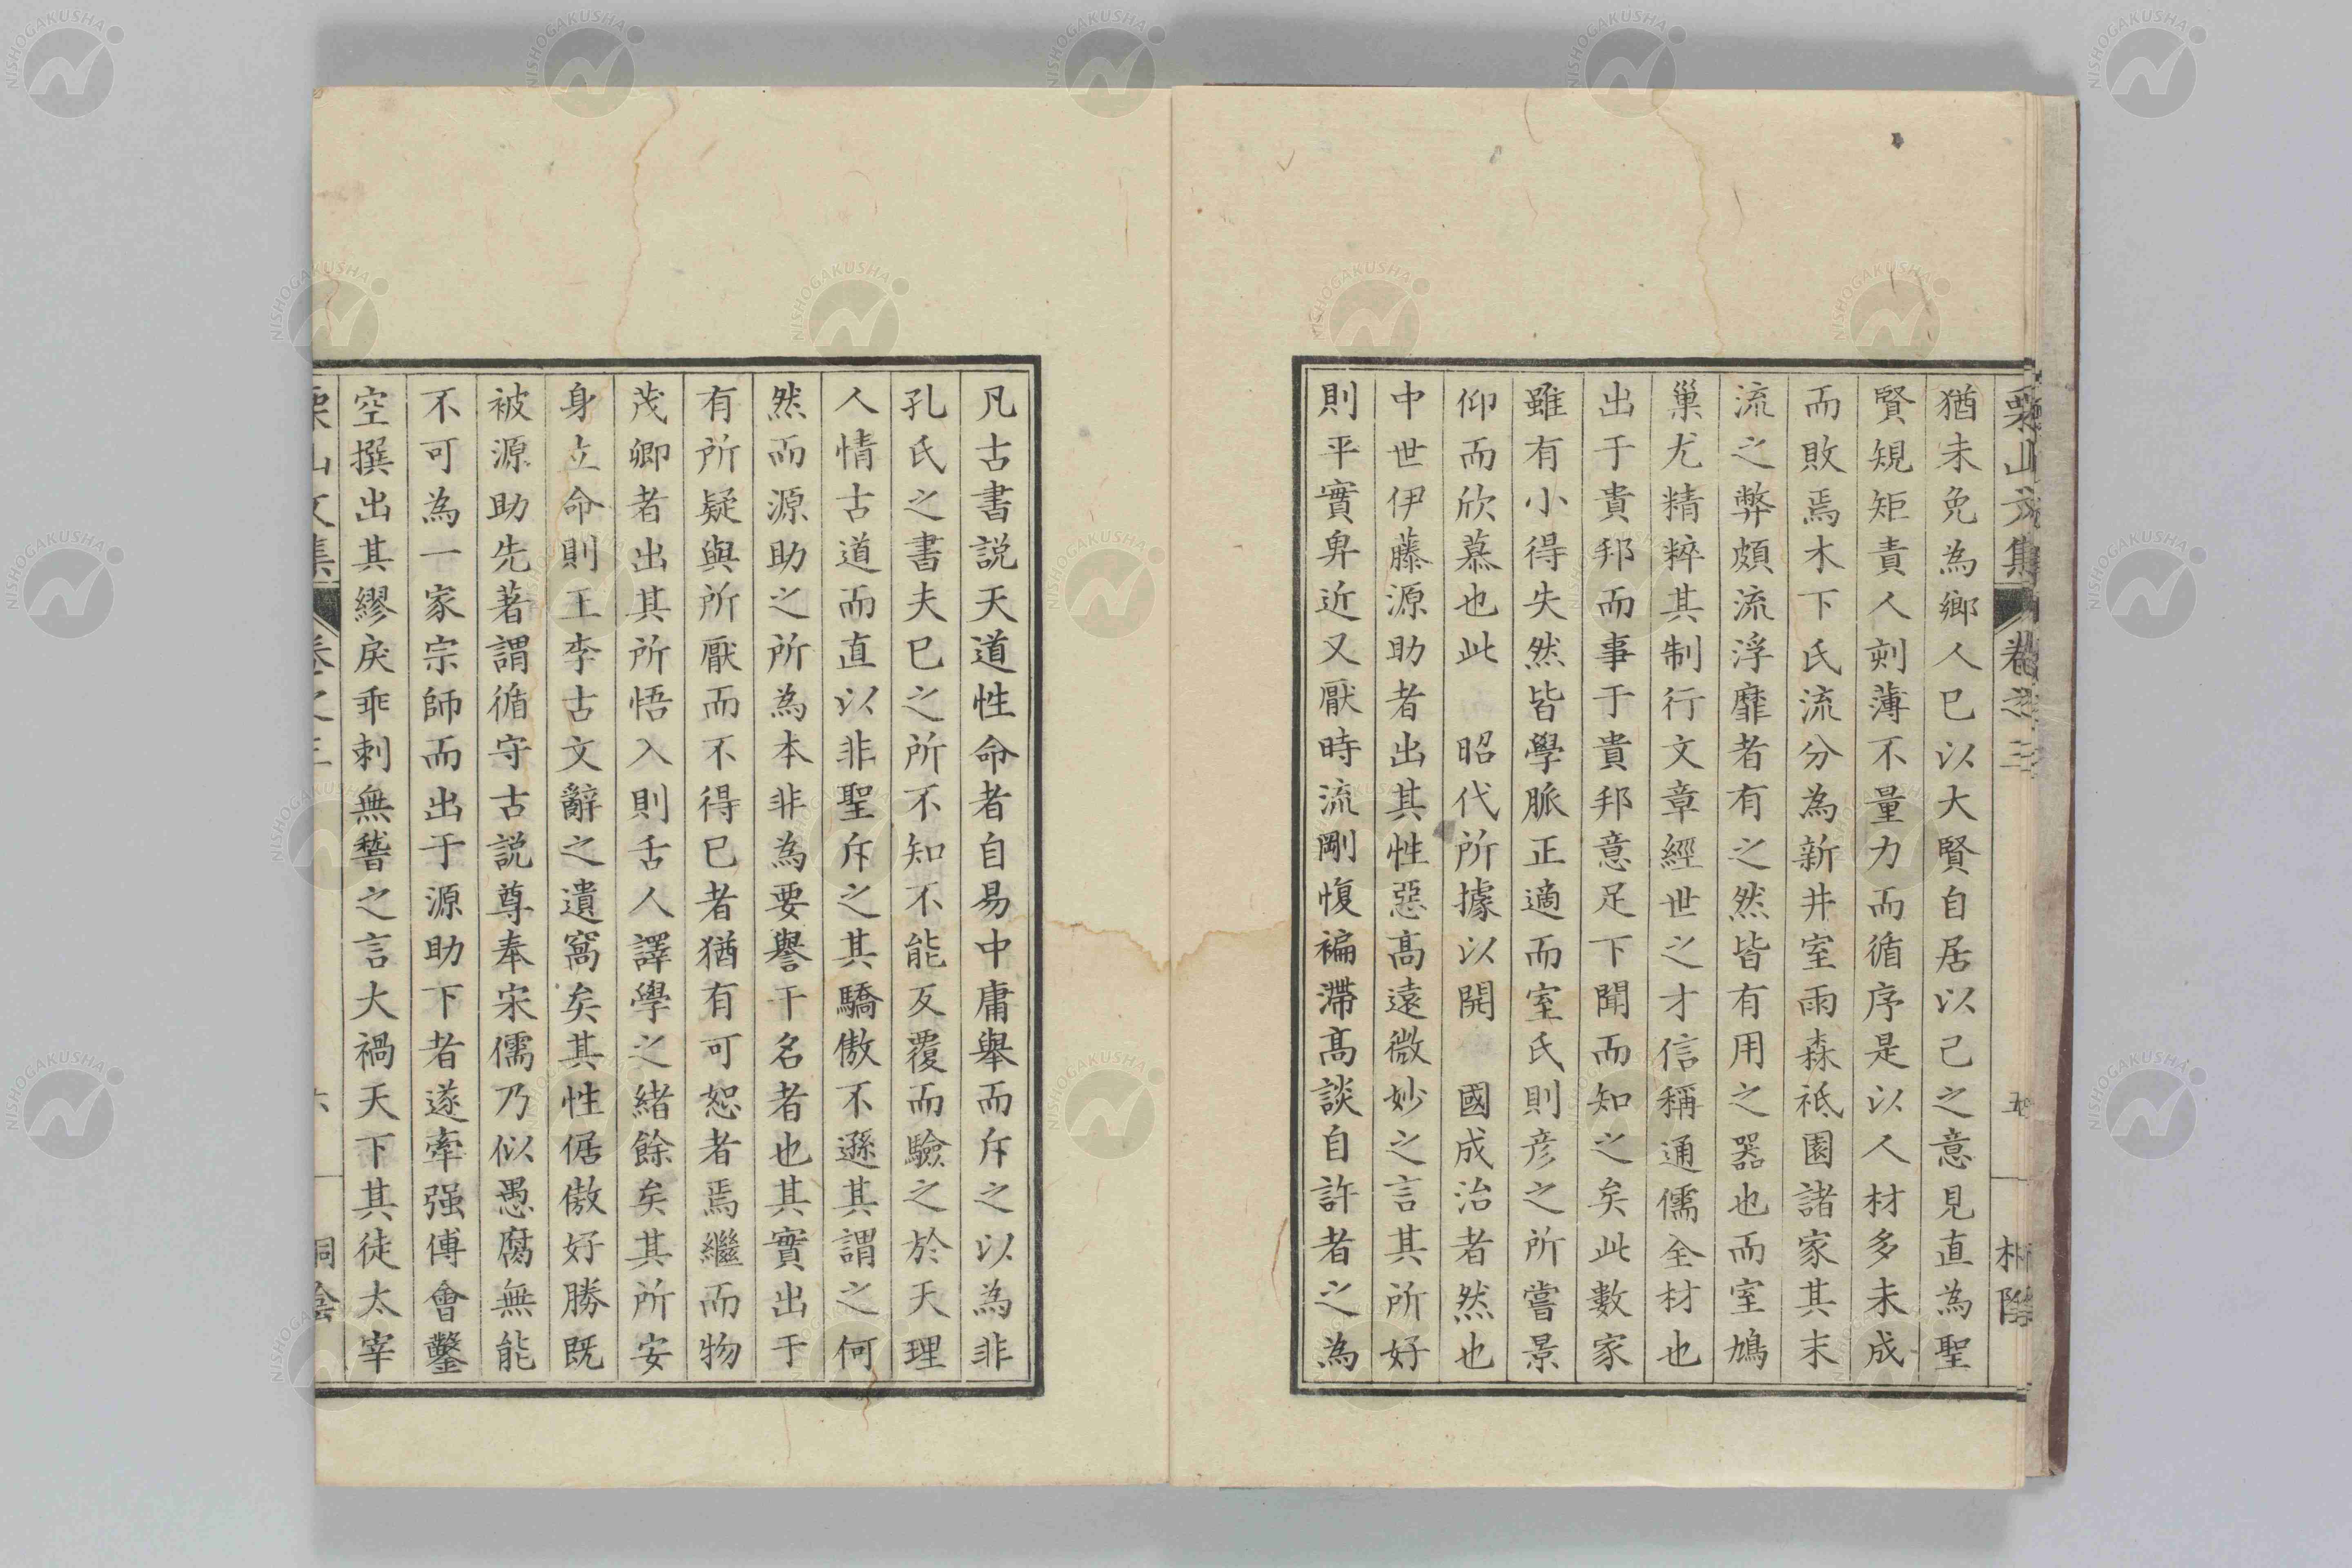 栗山文集 卷之三 五
猶未免為鄉人已以大賢自居以己之意見直為聖
賢規矩責人刻薄不量力而循序是以人材多未成
而敗焉木下氏流分為新井室雨森祇園諸家其末
流之弊頗流浮靡者有之然皆有用之器也而室鳩
巢尤精粹其制行文章經世之才信稱通儒全材也
出于貴邦而事于貴邦意足下聞而知之矣此數家
雖有小得失然皆學脈正適而室氏則彥之所嘗景
仰而欣慕也此 昭代所據以開 國成治者然也
中世伊藤源助者出其性惡高遠微妙之言其所好
則平實卑近又厭時流剛愎褊滯高談自許者之為
凡古書説天道性命者自易中庸舉而斥之以為非
孔氏之書夫已之所不知不能反覆而驗之於天理
人情古道而直以非聖斥之其驕傲不遜其謂之何
然而源助之所為本非為要譽干名者也其實出于
有所疑與所厭而不得已者猶有可恕者焉繼而物
茂卿者出其所悟入則舌人譯學之緒餘矣其所安
身立命則王李古文辭之遺窩矣其性倨傲好勝既
被源助先著謂循守古説尊奉宋儒乃似愚腐無能
不可為一家宗師而出于源助下者遂牽强傅會鑿
空撰出其繆戾乖剌無稽之言大禍天下其徒太宰